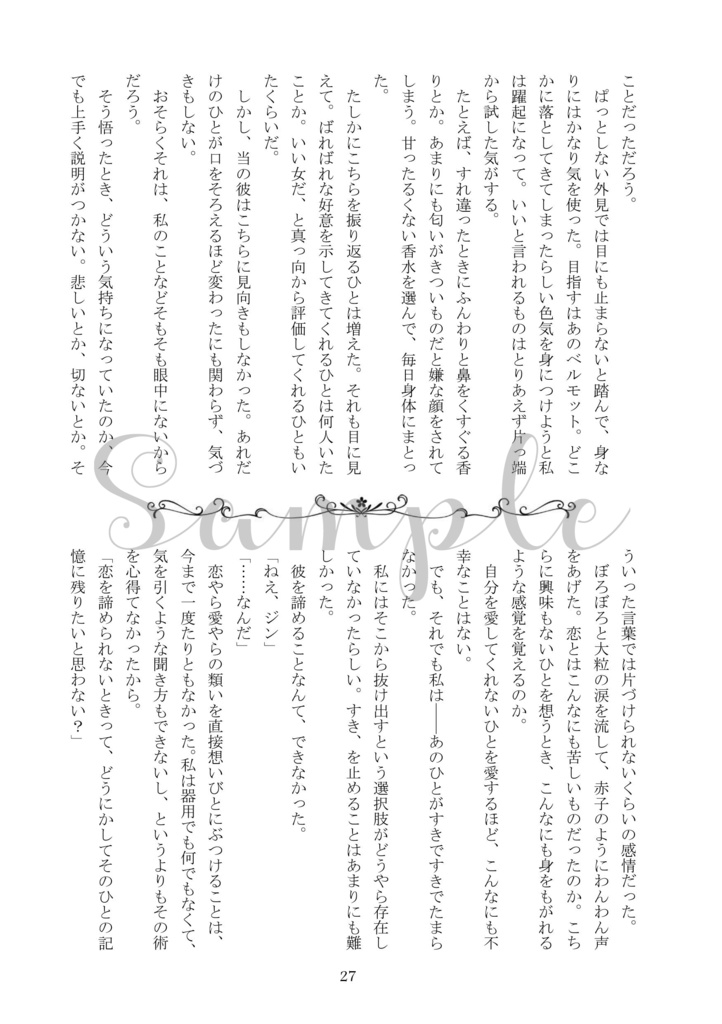 ことだっただろう。
　ぱっとしない外見では目にも止まらないと踏んで、身な
りにはかなり気を使った。目指すはあのベルモット。どこ
かに落としてきてしまったらしい色気を身につけようと私
は躍起になって。いいと言われるものはとりあえず片っ端
から試した気がする。
　たとえば、すれ違ったときにふんわりと鼻をくすぐる香
りとか。あまりにも匂いがきついものだと嫌な顔をされて
しまう。甘ったるくない香水を選んで、毎日身体にまとっ
た。
　たしかにこちらを振り返るひとは増えた。それも目に見
えて。ばればれな好意を示してきてくれるひとは何人いた
ことか。いい女だ、と真っ向から評価してくれるひともい
たくらいだ。
　しかし、当の彼はこちらに見向きもしなかった。あれだ
けのひとが口をそろえるほど変わったにも関わらず、気づ
きもしない。
　おそらくそれは、私のことなどそもそも眼中にないから
だろう。
　そう悟ったとき、どういう気持ちになっていたのか、今
でも上手く説明がつかない。悲しいとか、切ないとか。そ
ういった言葉では片づけられないくらいの感情だった。
　ぼろぼろと大粒の涙を流して、赤子のようにわんわん声
をあげた。恋とはこんなにも苦しいものだったのか。こち
らに興味もないひとを想うとき、こんなにも身をもがれる
ような感覚を覚えるのか。
　自分を愛してくれないひとを愛するほど、こんなにも不
幸なことはない。
　でも、それでも私は――あのひとがすきですきでたまら
なかった。
　私にはそこから抜け出すという選択肢がどうやら存在し
ていなかったらしい。すき、を止めることはあまりにも難
しかった。
　彼を諦めることなんて、できなかった。
「ねえ、ジン」
「……なんだ」
　恋やら愛やらの類いを直接想いびとにぶつけることは、
今まで一度たりともなかった。私は器用でも何でもなくて、
気を引くような聞き方もできないし、というよりもその術
を心得てなかったから。
「恋を諦められないときって、どうにかしてそのひとの記
憶に残りたいと思わない？」
Sample
27